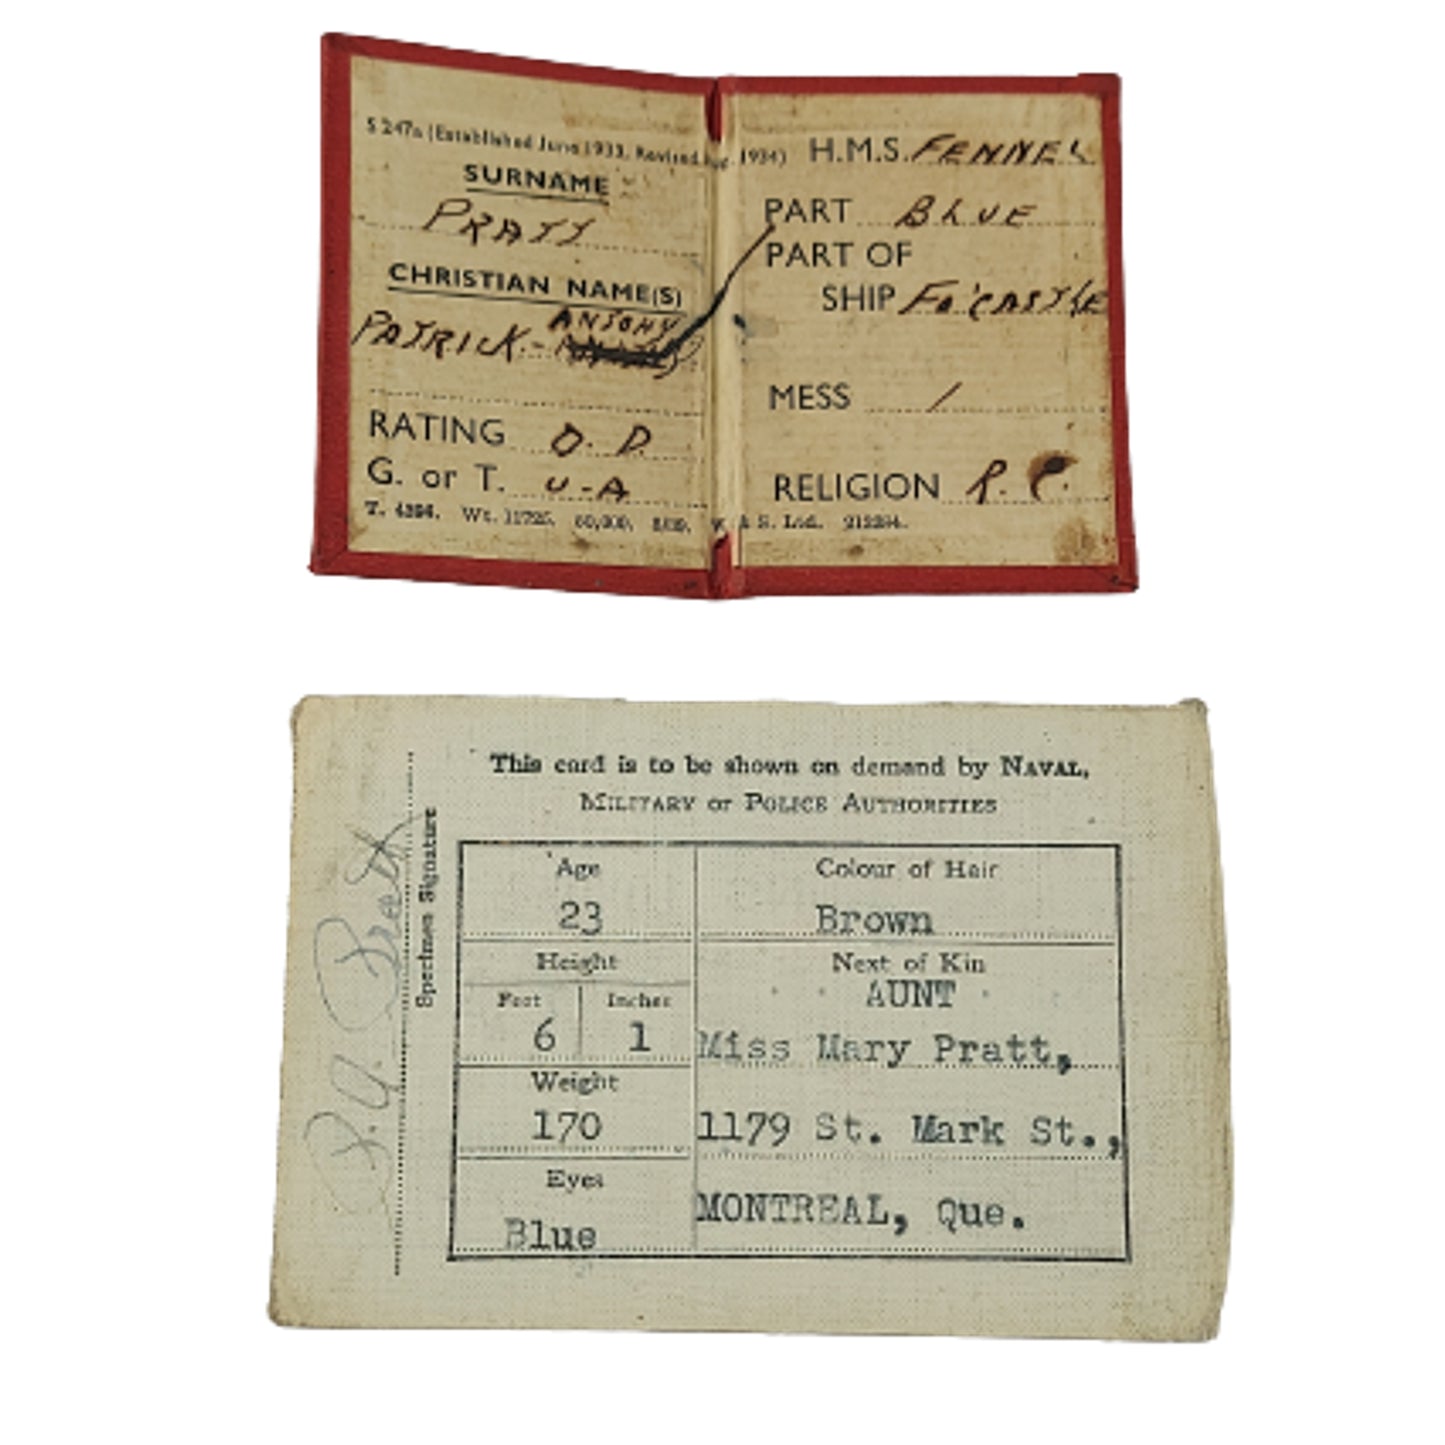 S 247a (Established June 1933, Revised Aug. 1934)
SURNAME
PRATT
CHRISTIAN NAME(S)
ANTOHY
PATRICK-
RATING O. D.
G. or T. U-A
H.M.S. FENNEL
PART BLUE
PART OF
SHIP FO'CASTLE
MESS /
RELIGION R. C.
T. 4394. Wt. 11725. 60,000. S. Ltd. 212284.
This card is to be shown on demand by NAVAL,
MILITARY or POLICE AUTHORITIES
Specimen Signature
P. A. Pratt
Age
23
Height
Feet Inches
6 1
Weight
170
Eyes
Blue
Colour of Hair
Brown
Next of Kin
AUNT
Miss Mary Pratt,
1179 St. Mark St.,
MONTREAL, Que.